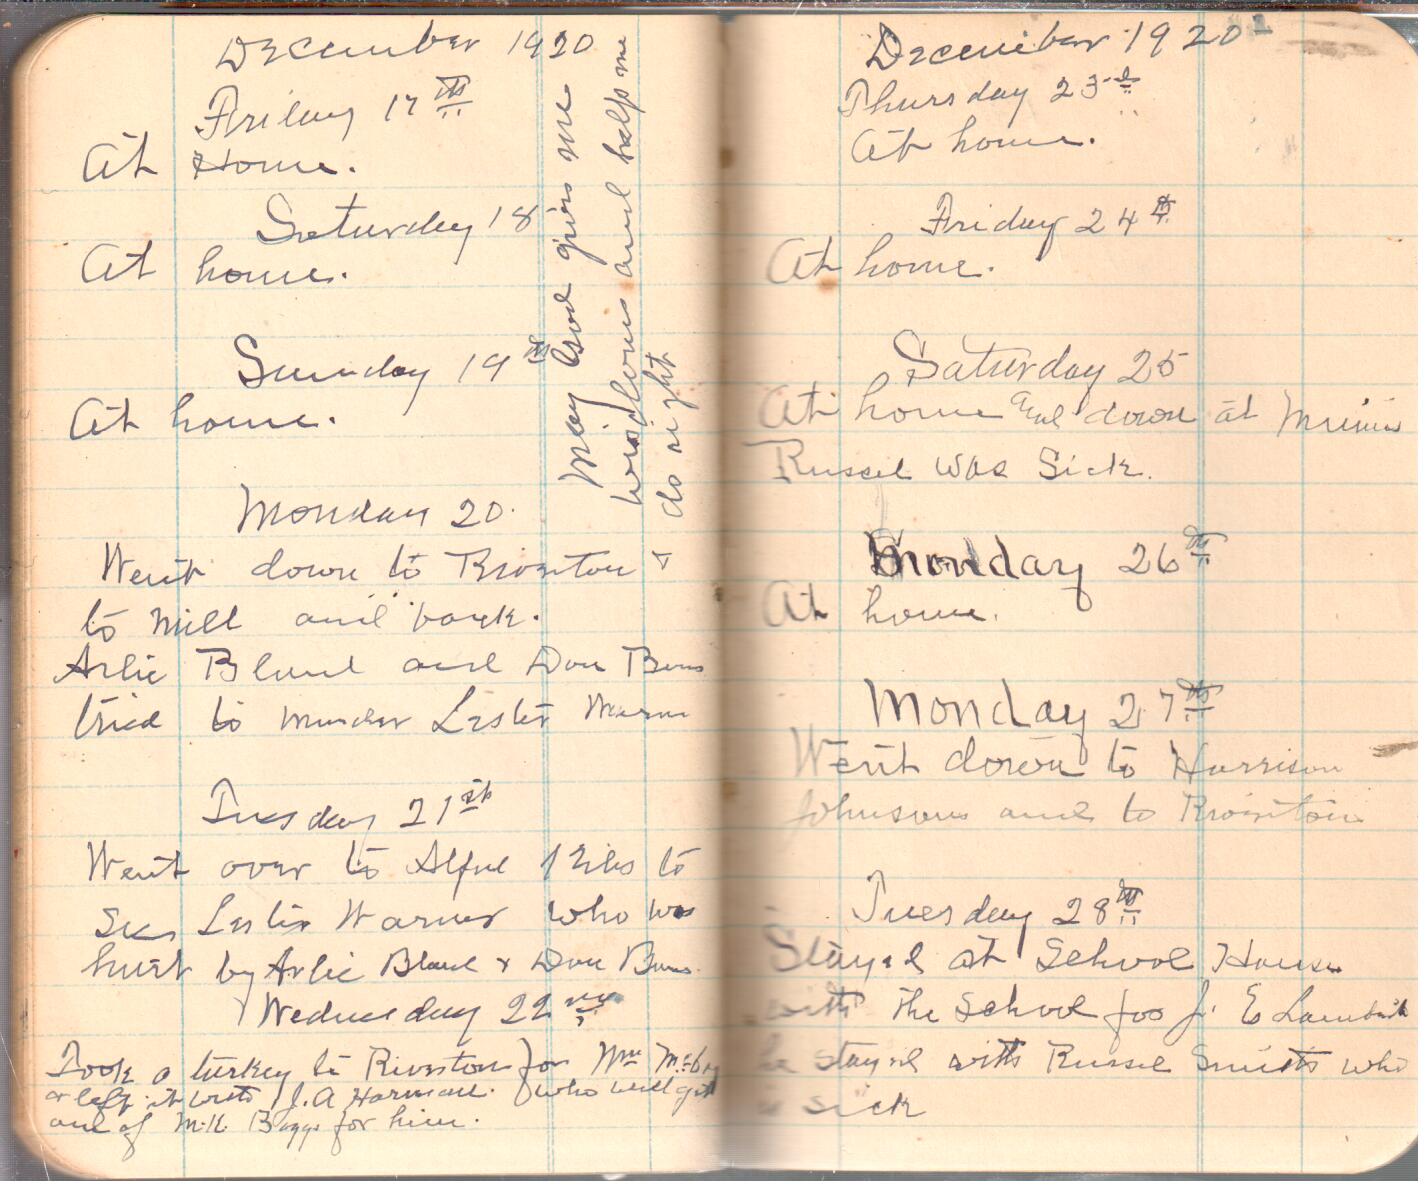 December 1920
Friday 17th
At Home.
Saturday 18
At home.
Sunday 19th
At home.
Monday 20.
Went down to Riverton &
to Mill and back.
Arlie Bland and Don
tried to murder Lester
Tuesday 21st
Went over to to
see Lester Warner who was
hurt by Arlie Bland & Don
Wednesday 22
Took a turkey to Riverton for Wm
or left it with J. A. Harman. who will get
one of M.K. Boggs for him.
May God give me
wisdom and help me
do right
December 1920
Thursday 23d
At home.
Friday 24th
At home.
Saturday 25
At home and down at
Russel was Sick.
Monday 26th
At home.
Monday 27th
Went down to Harrison
Johnsons and to Riverton
Tuesday 28th
Stayed at School House
with the School for J. E. Lambert
he stayed with Russel Smith who
is sick